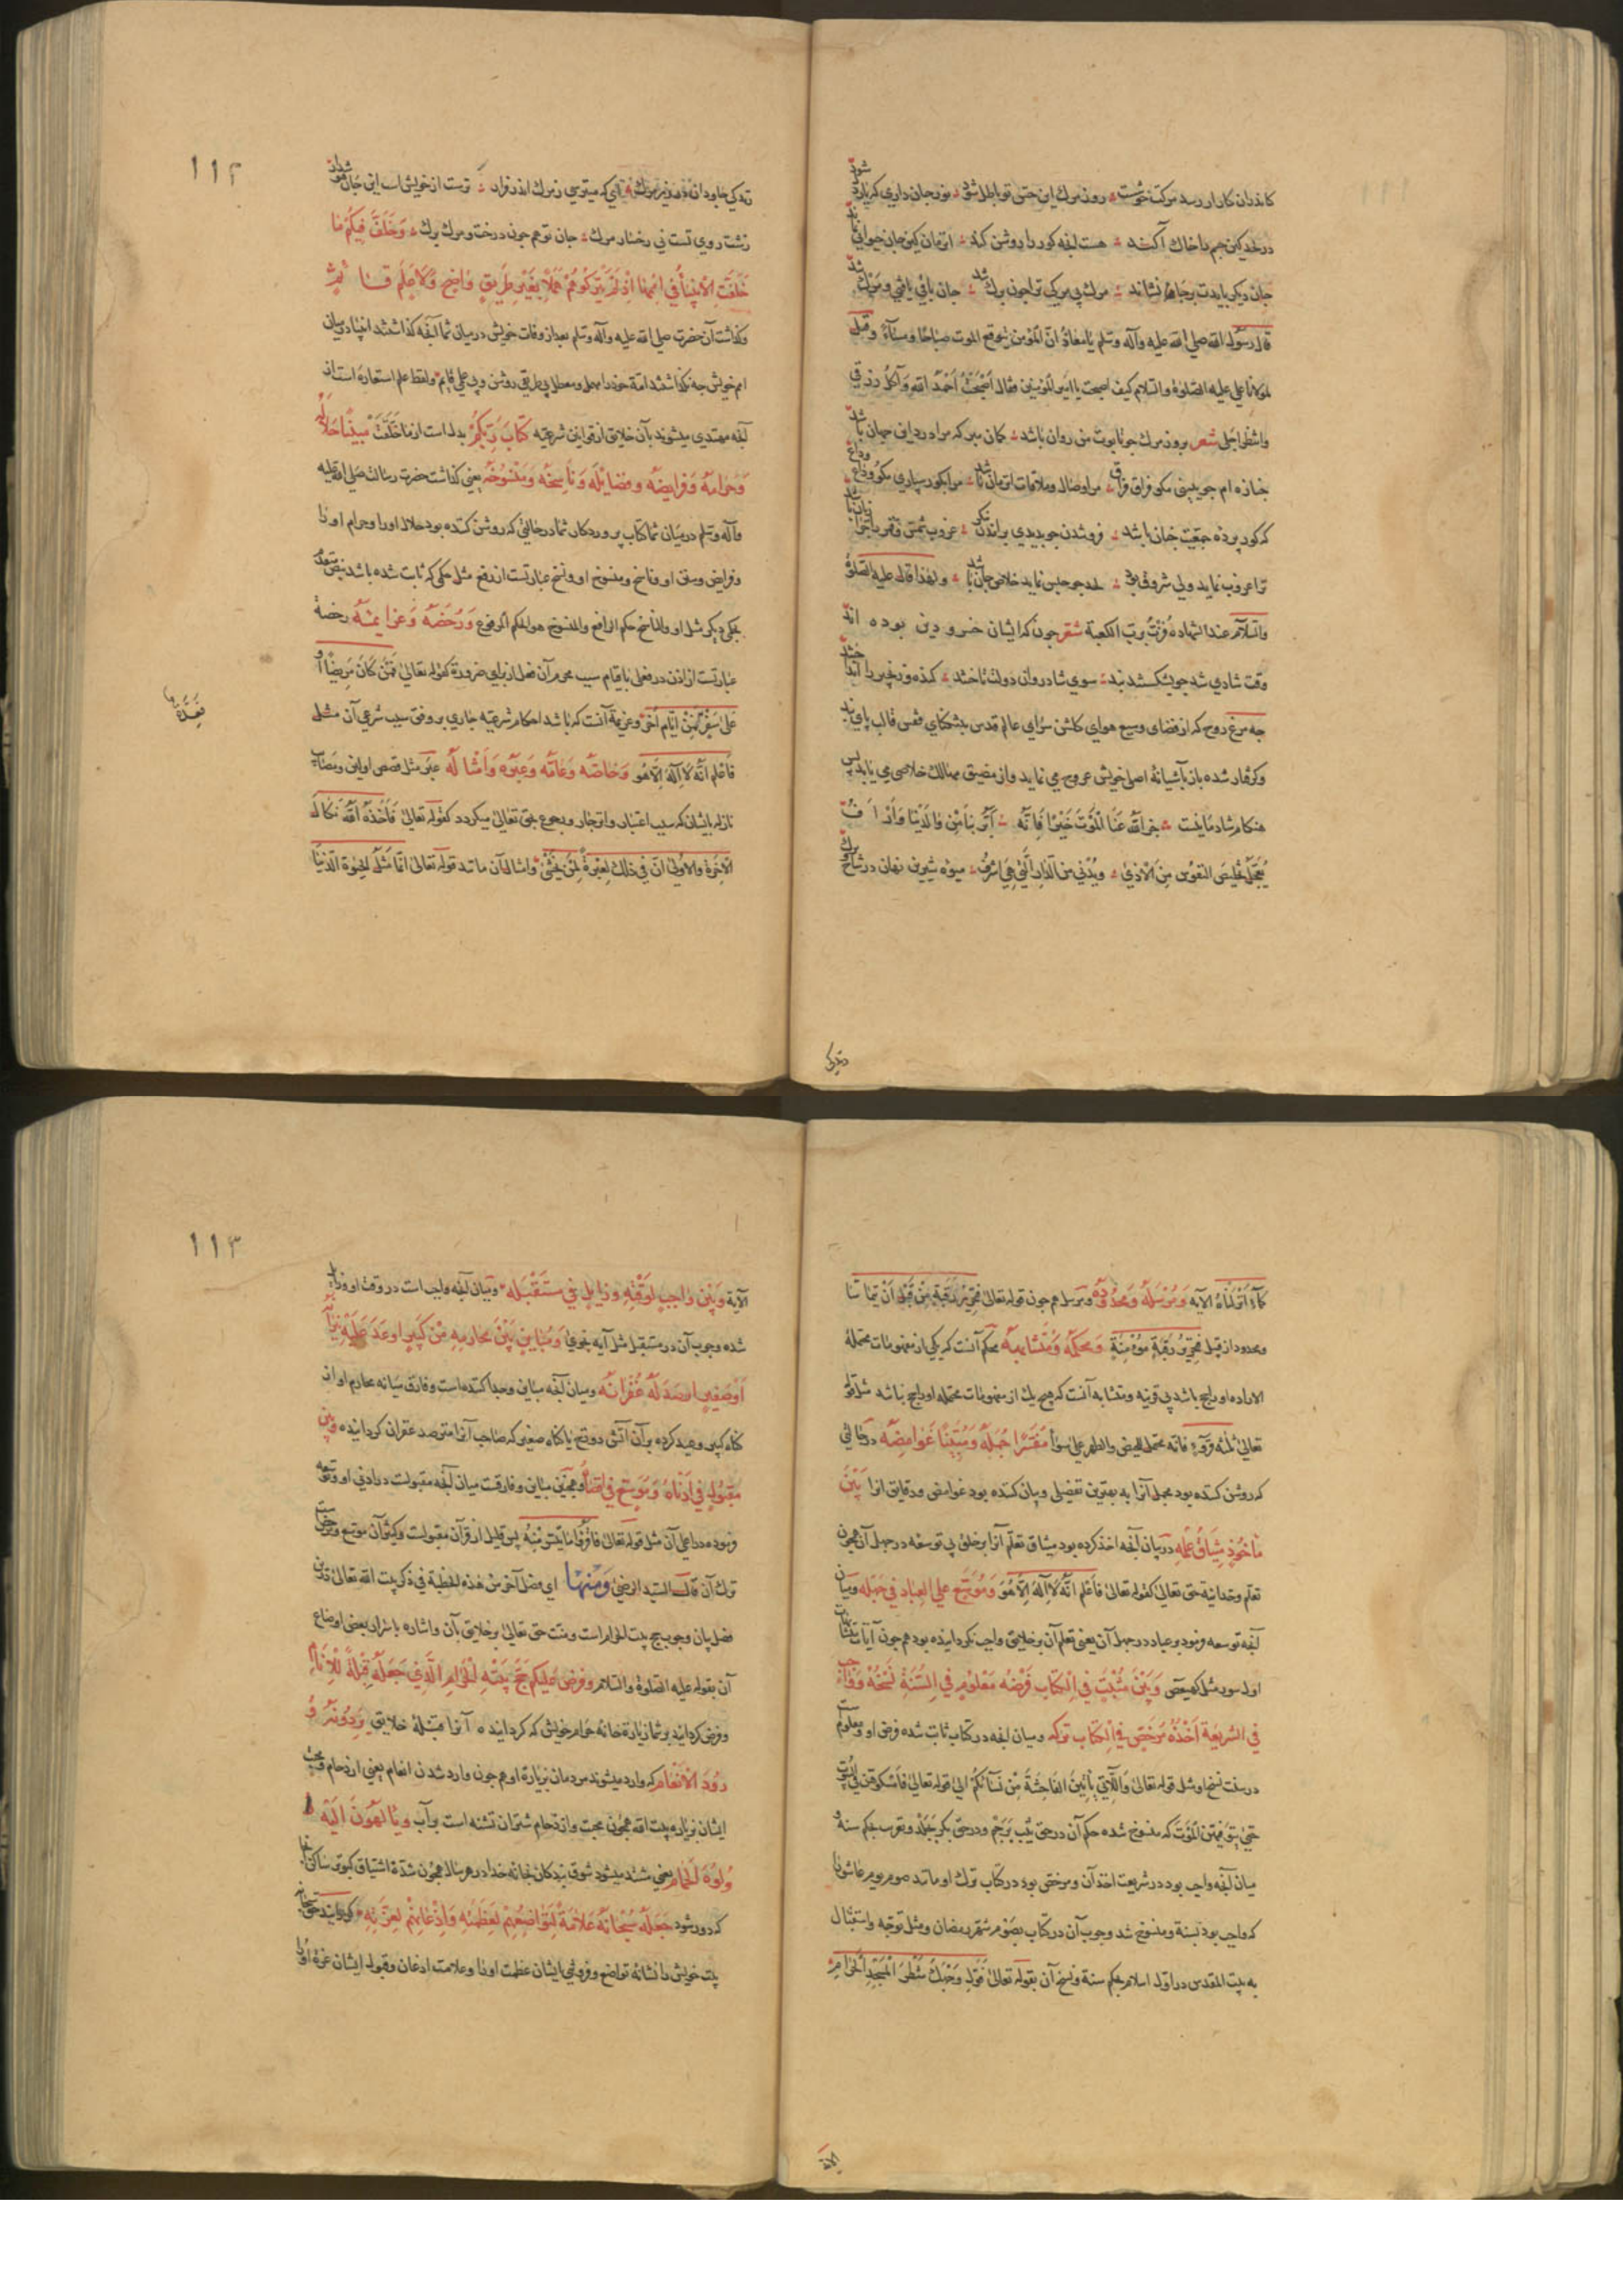 کاندران کار ار رسد مرکت خوشست روز مرک این حس تو باطل شود نور جان داری که یار دل شود
در لحد کین چشم را خاک آکند هست آنچه کور را روشن کند آن زمان کین جان حیوانی نماند
جان دیکر بایدت بر جا نشاند مرک پی مرکی ترا چون برک شد جان باقی یافتی و مرک شد
قال رسول الله صلی الله علیه وآله وسلم یا معاذ انّ المؤمن یتوقع الموت صباحا ومساءً وقیل
لمولانا علی علیه الصلوة والسلام کیف اصبحت یا امیر المؤمنین فقال اصبحتُ احمد الله وآکل رزقی
وانتظر اجلی شعر بروز مرک چو تابوت من روان باشد کمان مبر که مرا درد این جهان باشد
جنازه ام چو ببینی مکو فراق فراق مرا وصال و ملاقات آن زمان باشد مرا بکور سپاری مکو وداع وداع
که کور پرده جمعیت جنان باشد فرو شدن چو بدیدی بر آمدن بنکر غروب شمس و قمر را چرا زیان باشد
ترا غروب نماید ولی شروق بود لحد چو حبس نماید خلاص جان باشد ولهذا قال علیه الصلوة
والسلام عند الشهادة فزتُ بربّ الکعبة شعر چون که ایشان خسرو دین بوده اند
وقت شادی شد چو بشکستند بند سوی شادروان دولت تاختند کنده و زنجیر را انداختند
چه مرغ روح که از فضای وسیع هوای کلشن سرای عالم قدس بتنکنای قفس قالب پای بند
وکرفتار شده باز بآشیانهٔ اصلی خویش عروج می نماید واز مضیق مهالک خلاصی می یابد پس
هنکام شادمانیست جزی الله عنا الموت خیرا فانّه ابرّ بنا من والدینا وارأف
یعجّل تخلیص النفوس من الاذی ویدنی من الدار التی هی اشرف میوه شیرین نهان در شاخ و برک
زندکی
۱۱۲
زندکی جاودان در زیر مرک آن که میترسی ز مرک اندر فرار آن ز خویش است ای جان هوش دار
زشت روی تست نی رخسار مرک جان تو هم چون درخت و مرک برک وَخَلَّفَ فِیکُمْ مَا
خَلَّفَتِ الْاَنْبِیَاءُ فِی اُمَمِهَا اِذْ لَمْ یَتْرُکُوهُمْ هَمَلًا بِغَیْرِ طَرِیقٍ وَاضِحٍ وَلَا عَلَمٍ قَائِمٍ
وکذاشت آن حضرت صلی الله علیه وآله وسلم بعد از وفات خویش در میان شما آنچه کذاشتند انبیا در میان
امم خویش چه نکذاشتند امّة خود را مهمل و معطل پی طریقی روشن و پی علمی قایم ولفظ علم استعاره است از
آنچه مهتدی میشوند بآن خلایق از قوانین شرعیه کِتَابَ رَبِّکُمْ بدل است از ما خَلَّفَتْ مُبَیِّنًا حَلَالَهُ
وَحَرَامَهُ وَفَرَایِضَهُ وَفَضَایِلَهُ وَنَاسِخَهُ وَمَنْسُوخَهُ یعنی کذاشت حضرت رسالت صلی الله علیه
وآله وسلم در میان شما کتاب پروردکار شما در حالتی که روشن کننده بود حلال او را و حرام او را
و فرایض و سنن او و ناسخ و منسوخ او و نسخ عبارتست از رفع مثل حکمی که ثابت شده باشد بنص متقدم
بحکم دیکر مثل او والناسخ حکم الرافع والمنسوخ هو الحکم المرفوع وَرُخَصَهُ وَعَزَایِمَهُ رخصة
عبارتست از اذن در فعل با قیام سبب محرم آن فعل از برای ضرورة کقوله تعالی فَمَنْ کَانَ مَرِیضًا اَوْ
عَلَی سَفَرٍ فَعِدَّةٌ مِنْ اَیَّامٍ اُخَر وعزیمة آنست که باشد احکام شرعیه جاری بر وفق سبب شرعی آن مثل
فاعلم انّه لا اله الا هو وَخَاصَّهُ وَعَامَّهُ وَعِبَرَهُ وَاَمْثَالَهُ عبر مثل قصص اولین و مصائب
نازله بایشان که سبب اعتبار و انزجار و رجوع بحق تعالی میکردد کقوله تعالی فَاَخَذَهُ اللهُ نَکَالَ
الآخرة والاولی انّ فی ذلک لعبرةً لمن یخشی وامثال آن مانند قوله تعالی انما مثل الحیوة الدنیا
فَعِدَّةٌ
کماءٍ انزلناه الآیة وَمُرْسَلَهُ وَمَحْدُودَهُ ومرسل هم چون قوله تعالی فتحریر رقبة من قبل ان یتماسّا
ومحدود از قبیل فتحریر رقبة مؤمنة وَمُحْکَمَهُ وَمُتَشَابِهَهُ محکم آنست که یکی از مفهومات محتملة
الاراده او راجح باشد پی قرینه ومتشابه آنست که هیچ یک از مفهومات محتمله او راجح نباشد مثل قوله
تعالی ثلثة قروءٍ فانه محتمل للحیض والطهر علی سواء مُفَسِّرًا جُمَلَهُ وَمُبَیِّنًا غَوَامِضَهُ در حالتی
که روشن کننده بود مجمل آنرا به بهترین تفصیلی وبیان کننده بود غوامض و دقایق آنرا بَیْنَ
مَأْخُوذٍ مِیثَاقُ عِلْمِهِ در بیان آنچه اخذ کرده بود میثاق تعلّم آنرا بر خلق پی توسعه در جهل آن همچون
تعلّم وحدانیة حق تعالی کقوله تعالی فاعلم انّه لا اله الا هو وَمُوَسَّعٍ عَلَی الْعِبَادِ فِی جَهْلِهِ ومیان
آنچه توسعه فرمود بر عباد در جهل آن یعنی تعلم آن بر خلایق واجب نکردانیده بود هم چون آیات متشابهات
اول سور مثل کهیعص وَبَیْنَ مُثْبَتٍ فِی الْکِتَابِ فَرْضُهُ مَعْلُومٍ فِی السُّنَّةِ نَسْخُهُ وَوَاجِبٍ
فِی الشَّرِیعَةِ اَخْذُهُ مُرَخَّصٍ فِی الْکِتَابِ تَرْکُهُ ومیان آنچه در کتاب ثابت شده فرض او ومعلومست
در سنت نسخ او مثل قوله تعالی وَاللَّاتِی یَأْتِینَ الْفَاحِشَةَ مِنْ نِسَائِکُمْ الی قوله تعالی فَاَمْسِکُوهُنَّ فِی الْبُیُوتِ
حَتَّی یَتَوَفَّیهُنَّ الْمَوْتُ که منسوخ شده حکم آن در حق ثیّب برجم و در حق بکر بجلد و تغریب بحکم سنة و
میان آنچه واجب بود در شریعت اخذ آن و مرخص بود در کتاب ترک او مانند صوم یوم عاشورا
که واجب بود بسنة ومنسوخ شد وجوب آن در کتاب بصوم شهر رمضان ومثل توجه واستقبال
به بیت المقدس در اول اسلام بحکم سنة ونسخ آن بقوله تعالی فَوَلِّ وَجْهَکَ شَطْرَ الْمَسْجِدِ الْحَرَامِ
الآیة
۱۱۳
الآیة وَبَیْنَ وَاجِبٍ لِوَقْتِهِ وَزَایِلٍ فِی مُسْتَقْبَلِهِ ومیان آنچه واجب است در وقت او وزایل
شده وجوب آن در مستقبل مثل آیه نجوی وَمُبَایِنٍ بَیْنَ مَحَارِمِهِ مِنْ کَبِیرٍ اَوْعَدَ عَلَیْهِ نِیرَانَهُ
اَوْ صَغِیرٍ اَرْصَدَ لَهُ غُفْرَانَهُ ومیان آنچه مباین وجدا کننده است وفارق میانه محارم او از
کناه کبیر وعید کرده بر آن آتش دوزخ یا کناه صغیر که صاحب آنرا مترصد غفران کردانیده وَبَیْنَ
مَقْبُولٍ فِی اَدْنَاهُ وَمُوَسَّعٍ فِی اَقْصَاهُ وهمچنین مباین وفارقست میان آنچه مقبولست در ادنی او وتوسعه
فرموده در اعلی آن مثل قوله تعالی فاقرؤا ما تیسّر منه پس قلیل از قرآن مقبولست وکثیر آن موسع ومرخص
ترک آن قال السید الرضی وَمِنْهَا ای فصل آخر من هذه الخطبة فی ذکر بیت الله تعالی درین
فصل بیان وجوب حج بیت الحرام است ومنت حق تعالی بر خلایق بآن واشاره باسرار بعضی اوضاع
آن بقوله علیه الصلوة والسلام وَفَرَضَ عَلَیْکُمْ حَجَّ بَیْتِهِ الْحَرَامِ الَّذِی جَعَلَهُ قِبْلَةً لِلْاَنَامِ
وفرض کردانید بر شما زیارة خانه حرام خویش که کردانیده آنرا قبله خلایق یَرِدُونَهُ وُ
رُودَ الْاَنْعَامِ که وارد میشوند مردمان بزیارة او هم چون وارد شدن انعام یعنی ازدحام ومحبت
ایشان بزیاره بیت الله همچون محبت وازدحام شتران تشنه است بر آب وَیَأْلَهُونَ اِلَیْهِ
وُلُوهَ الْحَمَامِ یعنی مشتد میشود شوق بندکان بخانه خدا در هر سال همچون شدّة اشتیاق کبوتر ساکن
که دور شود جَعَلَهُ سُبْحَانَهُ عَلَامَةً لِتَوَاضُعِهِمْ لِعَظَمَتِهِ وَاِذْعَانِهِمْ لِعِزَّتِهِ کردانید حق سبحانه
بیت خویش را نشانهٔ تواضع وفروتنی ایشان عظمت او را وعلامت اذعان وقبول ایشان عزة او را